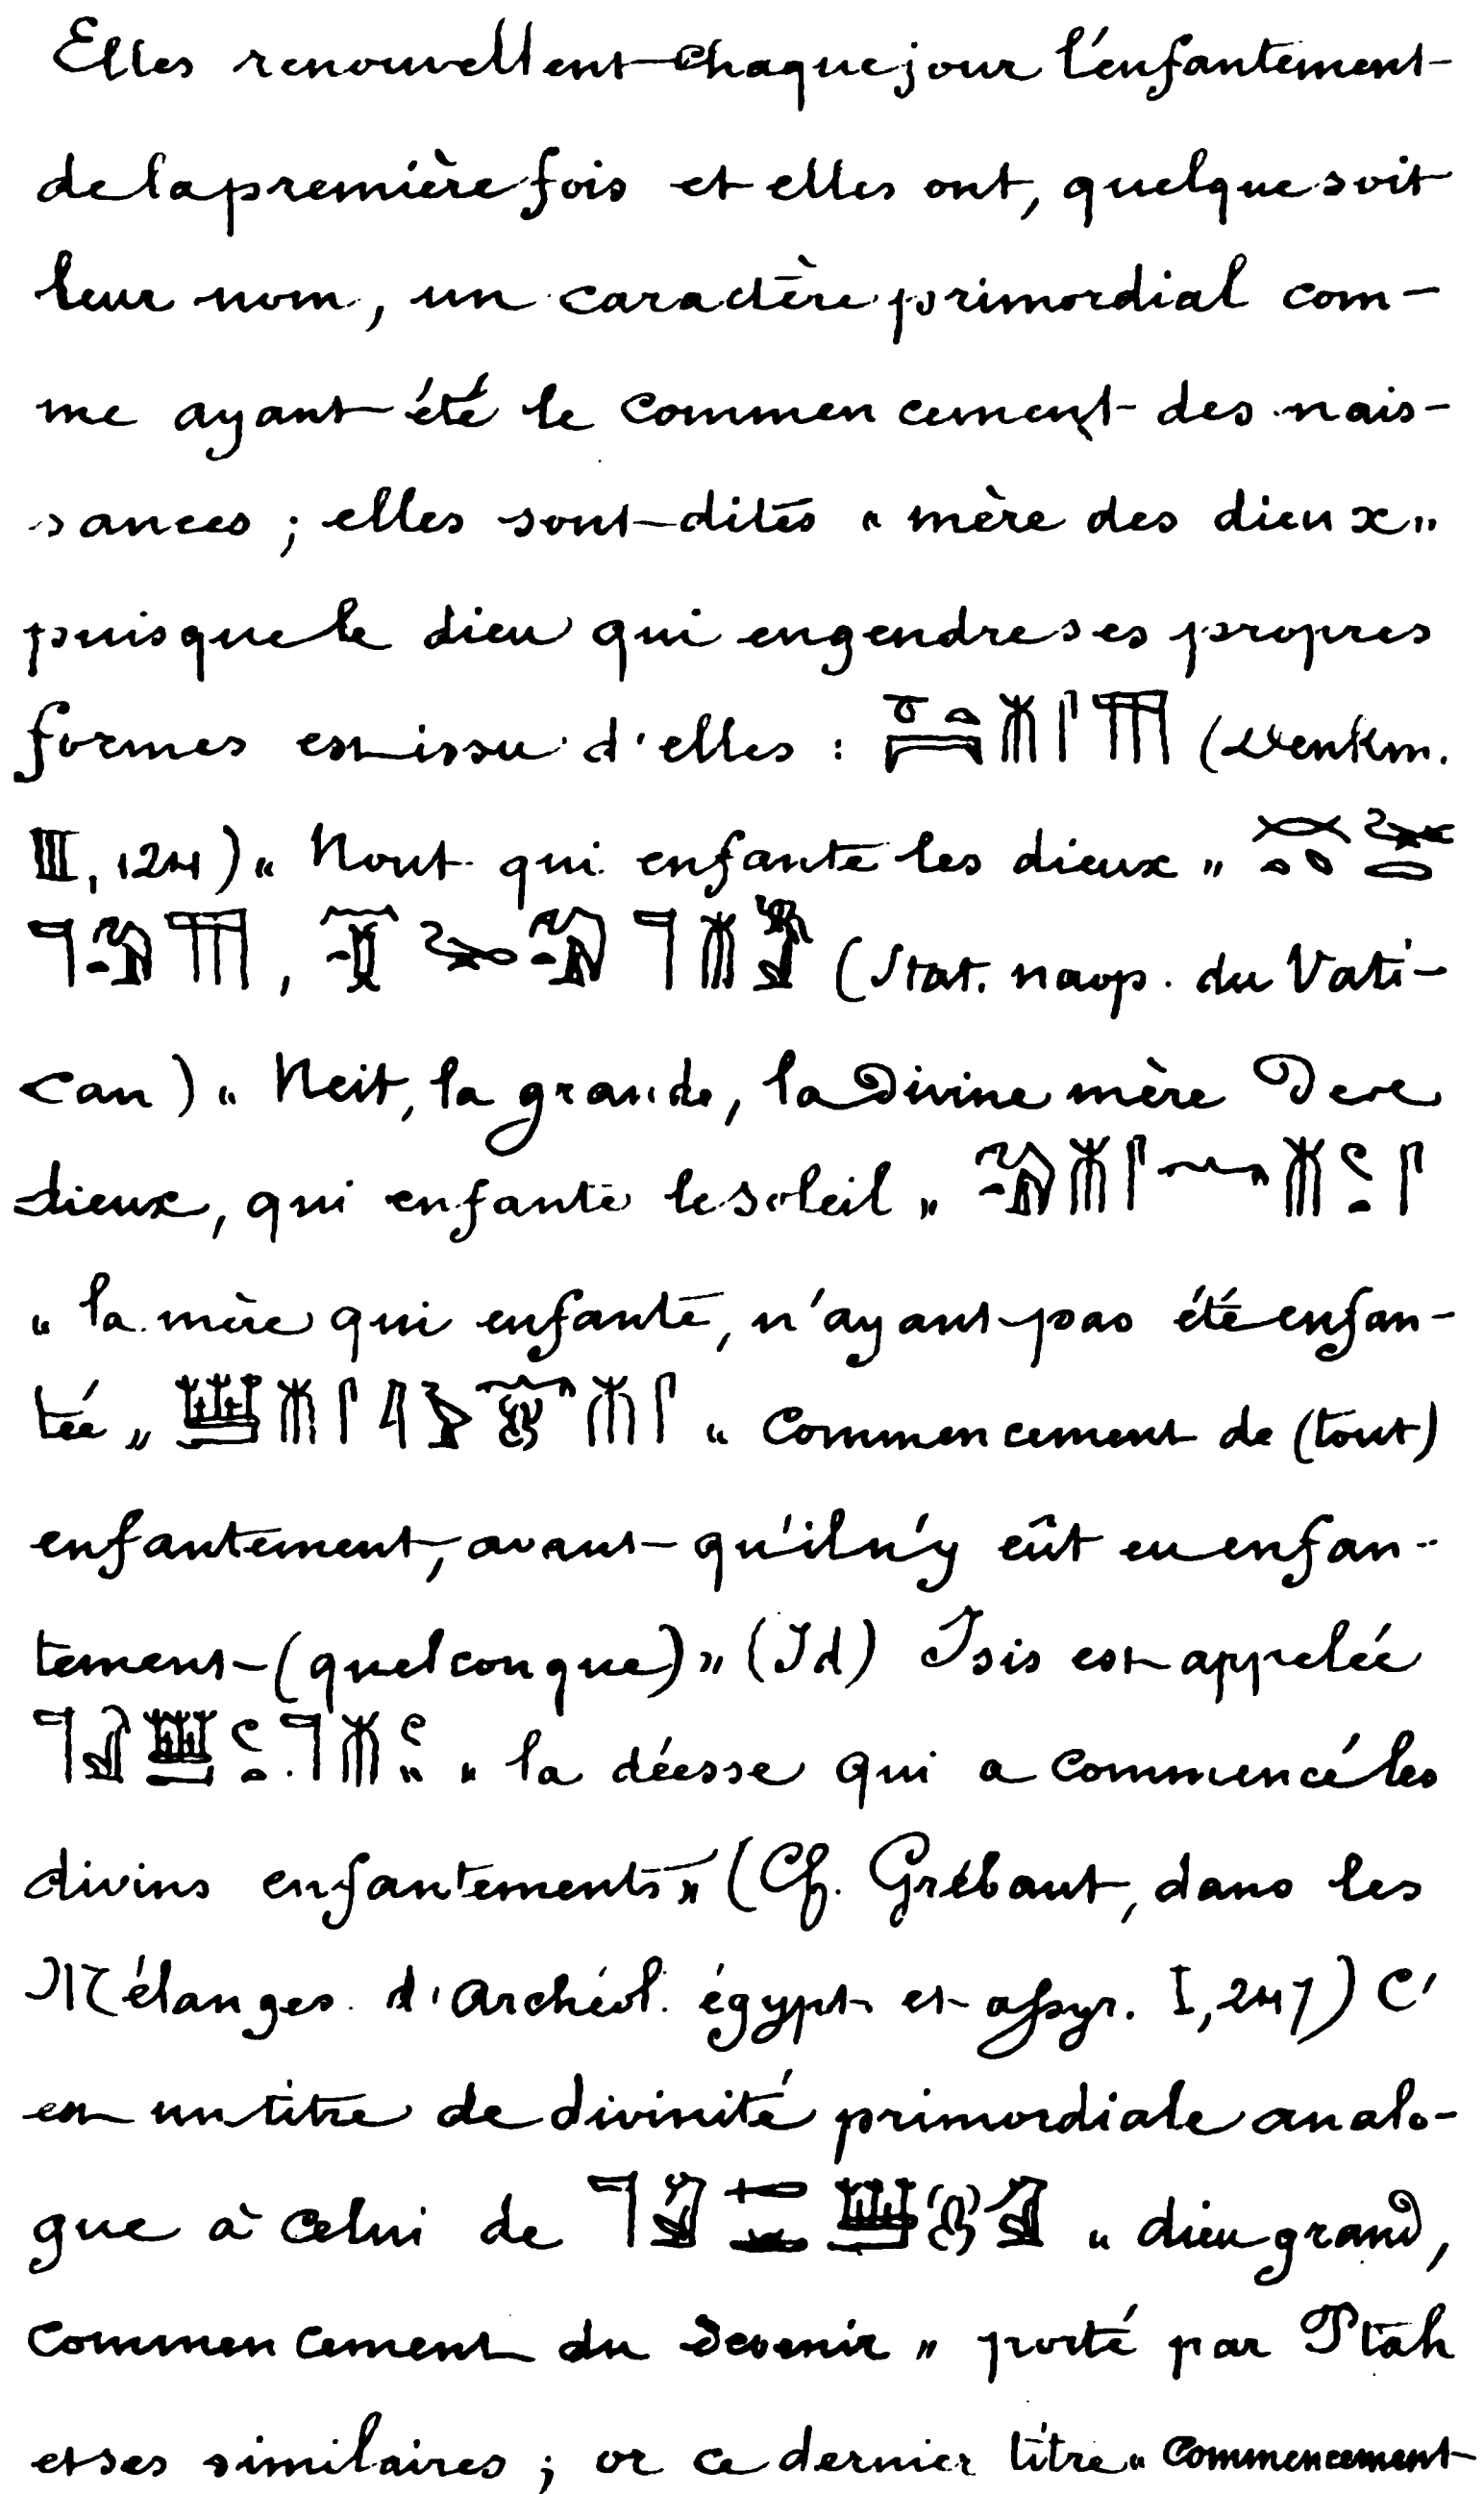 Elles renouvellent chaque jour l'enfantement
de la première fois et elles ont, quelque soit
leur nom, un caractère primordial com-
me ayant été le commencement des nais-
sances ; elles sont dites « mère des dieux »
puisque le dieu qui engendre ses propres
formes est issu d'elles : (Denkm.
III, 124) « Nout qui enfante les dieux »
, (Stat. naop. du Vati-
can) « Neit, la grande, la divine mère des
dieux, qui enfante le soleil »
« la mère qui enfante, n'ayant pas été enfan-
tée » « Commencement de (tout)
enfantement, avant qu'il n'y eût eu enfan-
tement (quelconque) » (Id) Isis est appelée
« la déesse qui a commencé les
divins enfantements » (Cf. Grébaut, dans les
Mélanges d'Archéol. égypt et assyr. I, 247) C'
est un titre de divinité primordiale analo-
gue à celui de « dieu grand,
commencement du devenir » porté par Ptah
et ses similaires ; or ce dernier titre « commencement